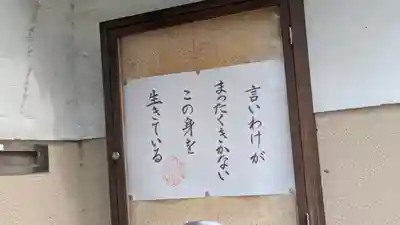 言いわけが
まったくきかない
この身を
生きている